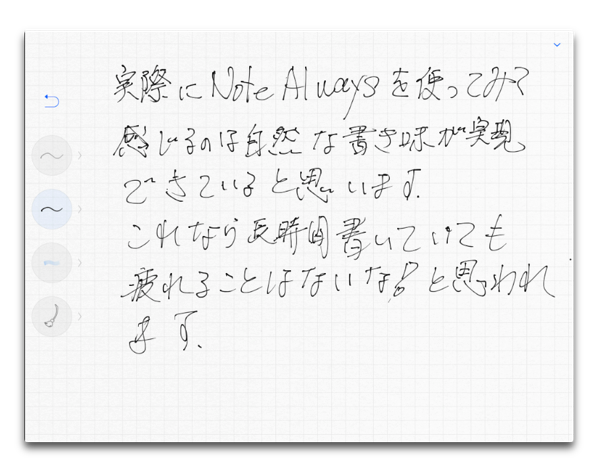 実際にNote Alwaysを使ってみて
感じるのは自然な書き味が実現
できていると思います.
これなら長時間書いていても
疲れることはないな!と思われ
ます.